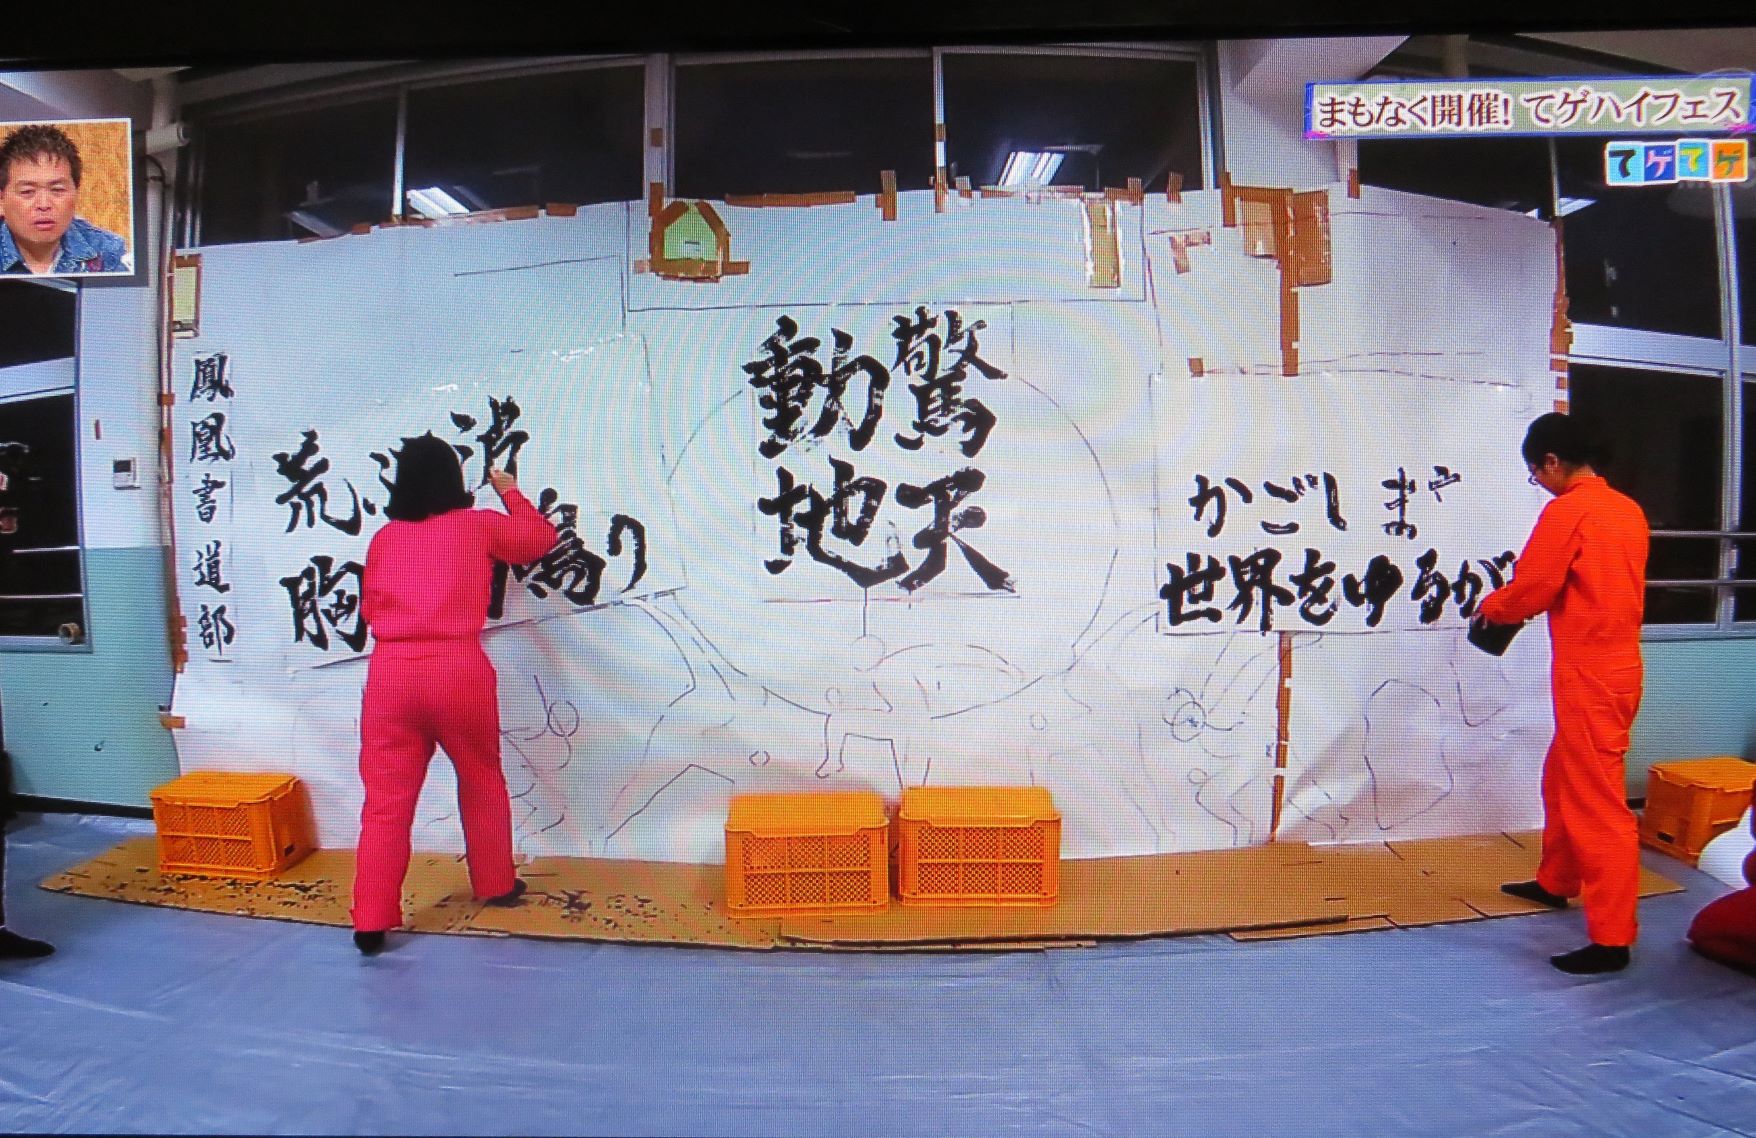 まもなく開催!てゲハイフェス
てゲてゲ
鳳凰書道部
荒 波
胸 鳴り
驚天
動地
かごしまや
世界をゆるが